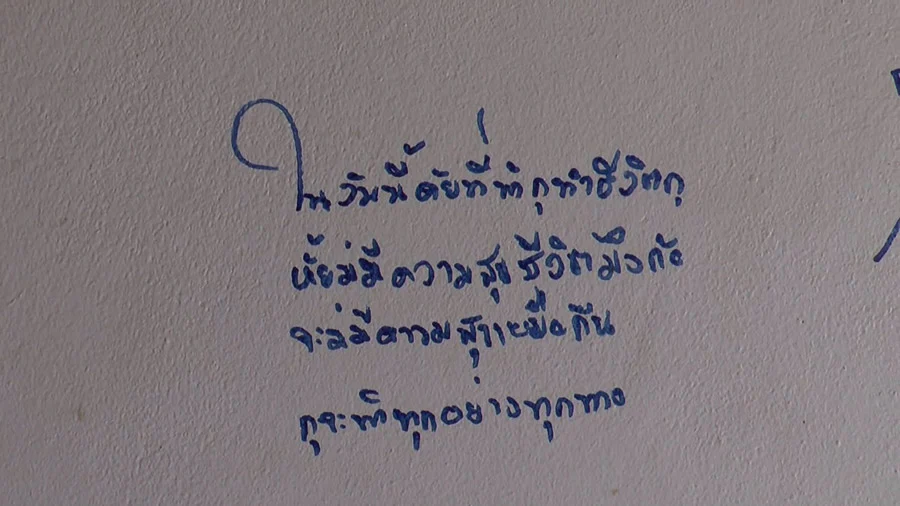 ในวันนี้ คัยที่ทำกุทำชีวิตกุ
ห้ัยม่มีความสุข ชีวิตมึงก้อ
จะม่มีความสุขเหมือกืน
กุจะทำทุกอย่างทุกทาง